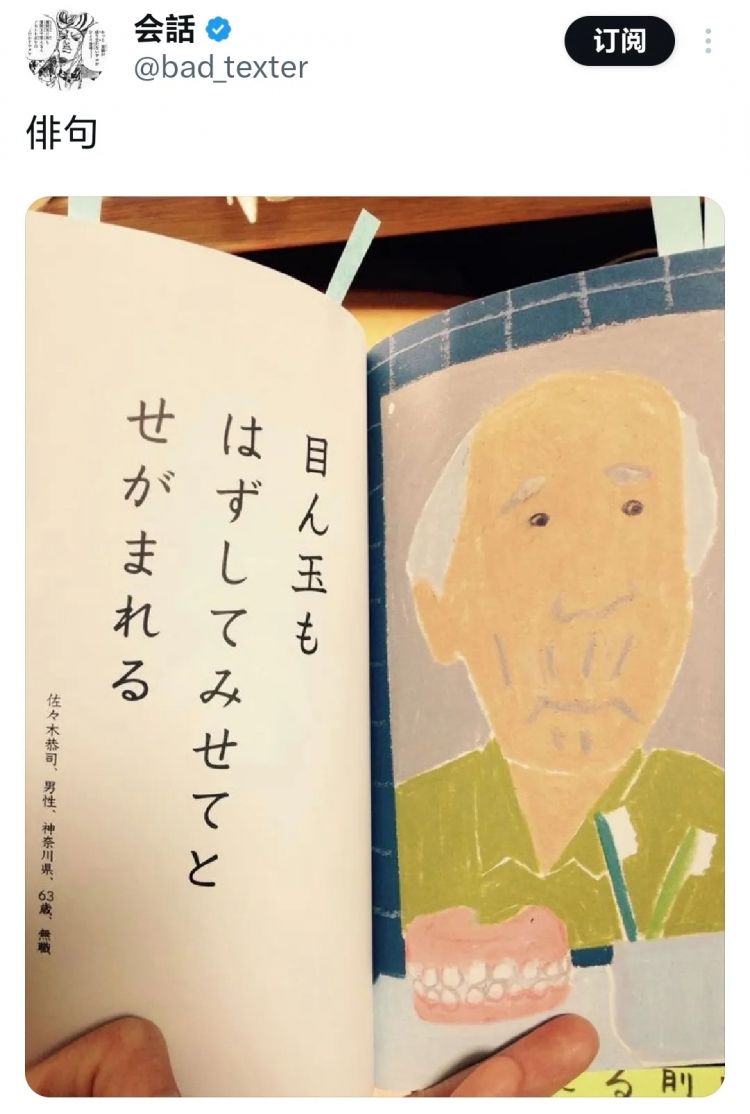 会話
@bad_texter
订阅
俳句
目ん玉も
はずしてみせてと
せがまれる
佐々木恭司、男性、神奈川県、63歳、無職
える則